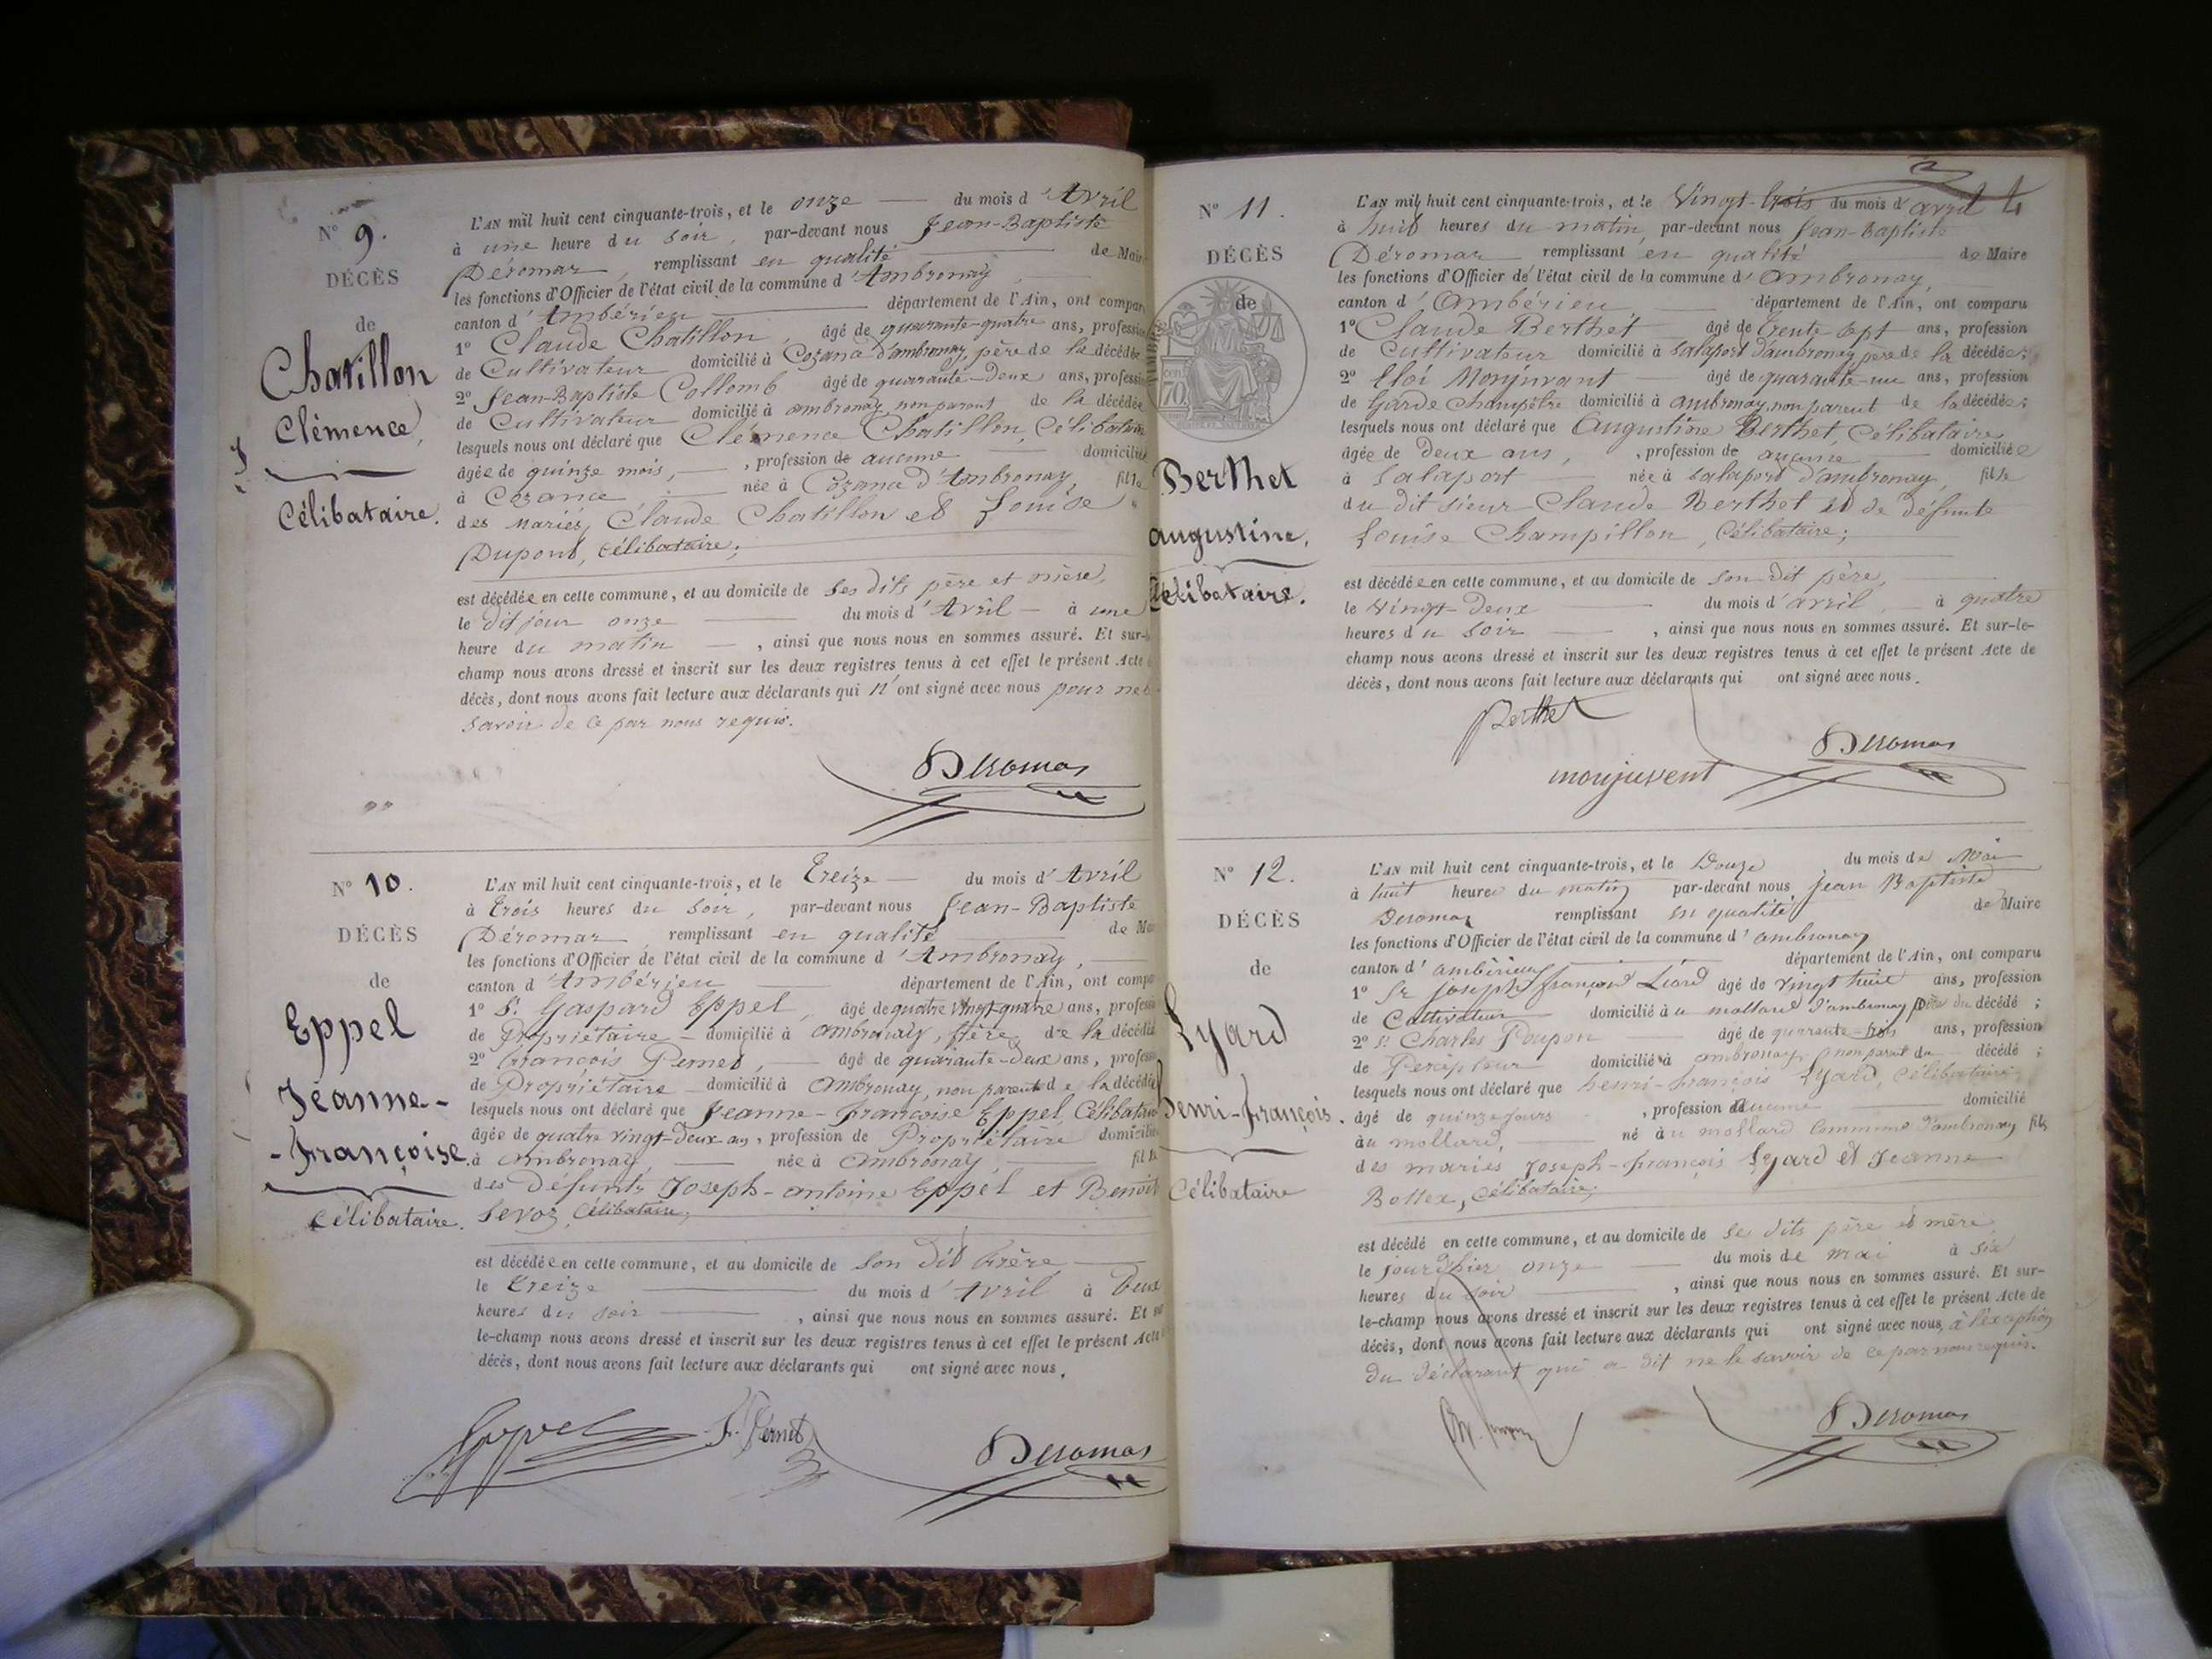 N° 9.
DÉCÈS
de
Chatillon
Clémence,
Célibataire.
L'AN mil huit cent cinquante-trois, et le onze du mois d'Avril
à une heure du soir, par-devant nous Jean-Baptiste
Déromas, remplissant en qualité de Maire
les fonctions d'Officier de l'état civil de la commune d'Ambronay
canton d'Ambérieu département de l'Ain, ont compar
1° Claude Chatillon, âgé de quarante-quatre ans, profession
de Cultivateur domicilié à Cozance d'ambronay, père de la décédée
2° Jean-Baptiste Collomb âgé de quarante-deux ans, profession
de Cultivateur domicilié à ambronay, non parent de la décédée
lesquels nous ont déclaré que Clémence Chatillon, Célibataire
âgée de quinze mois, , profession de aucune domiciliée
à Cozance, née à Cozance d'Ambronay, fille
des mariés, Claude Chatillon et Louise
Dupont, célibataire;
est décédée en cette commune, et au domicile de ses dits père et mère,
le dit jour onze du mois d'Avril à une
heure du matin, ainsi que nous nous en sommes assuré. Et sur-le-
champ nous avons dressé et inscrit sur les deux registres tenus à cet effet le présent Acte
décès, dont nous avons fait lecture aux déclarants qui n'ont signé avec nous pour ne
savoir de ce par nous requis.
Deromas
N° 10.
DÉCÈS
de
Eppel
Jeanne-
-Françoise.
Célibataire.
L'AN mil huit cent cinquante-trois, et le Treize du mois d'Avril
à trois heures du soir, par-devant nous Jean-Baptiste
Déromas, remplissant en qualité de Mai
les fonctions d'Officier de l'état civil de la commune d'Ambronay,
canton d'Ambérieu département de l'Ain, ont compa
1° Sr. Gaspard Eppel, âgé de quatre vingt-quatre ans, professi
de Propriétaire domicilié à ambronay, frère de la décédée
2° François Pernet, âgé de quarante-deux ans, profess
de Propriétaire domicilié à Ambronay, non parent de la décédée
lesquels nous ont déclaré que Jeanne-Françoise Eppel, Célibataire
âgée de quatre vingt-deux ans, profession de Propriétaire domiciliée
à Ambronay, née à Ambronay, fille
des défunts Joseph-antoine Eppel et Benoit
Sevoz, célibataire;
est décédée en cette commune, et au domicile de son dit frère
le treize du mois d'Avril à deux
heures du soir, ainsi que nous nous en sommes assuré. Et sur
le-champ nous avons dressé et inscrit sur les deux registres tenus à cet effet le présent Acte
décès, dont nous avons fait lecture aux déclarants qui ont signé avec nous.
Eppel F. Pernet
Deromas
4
N° 11.
DÉCÈS
de
70
Berthet
augustine,
Célibataire.
L'AN mil huit cent cinquante-trois, et le Vingt-trois du mois d'avril
à huit heures du matin, par-devant nous Jean-Baptiste
Déromas remplissant en qualité de Maire
les fonctions d'Officier de l'état civil de la commune d'ambronay,
canton d'Ambérieu département de l'Ain, ont comparu
1° Claude Berthet âgé de trente sept ans, profession
de Cultivateur domicilié à salaport d'ambronay père de la décédée;
2° Eloi Monjuvant âgé de quarante-un ans, profession
de Garde Champêtre domicilié à Ambronay, non parent de la décédée;
lesquels nous ont déclaré que Augustine Berthet, Célibataire
âgée de deux ans, , profession de aucune domiciliée
à Salaport née à salaport d'ambronay, fille
du dit sieur Claude Berthet et de défunte
Louise Champillon, Célibataire;
est décédée en cette commune, et au domicile de son dit père,
le vingt-deux du mois d'avril à quatre
heures du soir, ainsi que nous nous en sommes assuré. Et sur-le-
champ nous avons dressé et inscrit sur les deux registres tenus à cet effet le présent Acte de
décès, dont nous avons fait lecture aux déclarants qui ont signé avec nous.
Berthet
Deromas
monjuvent
N° 12.
DÉCÈS
de
Lyard
henri-françois.
Célibataire
L'AN mil huit cent cinquante-trois, et le Douze du mois de Mai
à huit heures du matin par-devant nous Jean Baptiste
Deromas remplissant en qualité de Maire
les fonctions d'Officier de l'état civil de la commune d'ambronay
canton d'ambérieu département de l'Ain, ont comparu
1° Sr joseph françois Liard âgé de vingt huit ans, profession
de Cultivateur domicilié à u mollard d'ambronay père du décédé;
2° Sr Charles Poupon âgé de quarante-trois ans, profession
de Percepteur domicilié à ambronay, non parent du décédé;
lesquels nous ont déclaré que henri-françois Lyard, Célibataire
âgé de quinze jours, profession de aucune domicilié
àu mollard, né àu mollard commune d'ambronay fils
des mariés Joseph-françois Lyard et Jeanne
Bottex, célibataire;
est décédé en cette commune, et au domicile de se dits père et mère
le jour d'hier onze du mois de mai à six
heures du soir, ainsi que nous nous en sommes assuré. Et sur-
le-champ nous avons dressé et inscrit sur les deux registres tenus à cet effet le présent Acte de
décès, dont nous avons fait lecture aux déclarants qui ont signé avec nous, à l'exception
du déclarant qui a dit ne le savoir de ce par nous requis.
Deromas